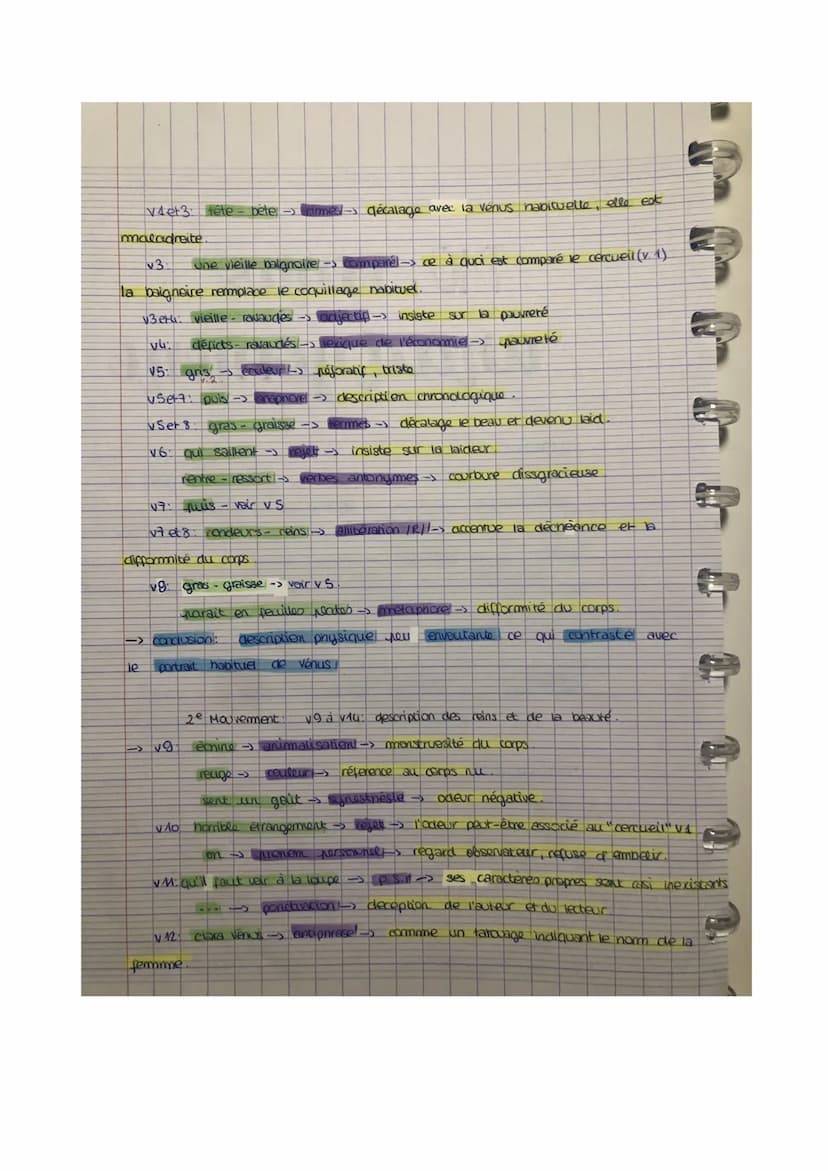 v1 et 3: tête - bête -> rimes -> décalage avec la vénus habituelle, elle est
maladroite.
v3: une vieille baignoire -> comparé -> ce à quoi est comparé le cercueil (v.1)
la baignoire remplace le coquillage habituel.
v3 et 4: vieille - ravaudés -> adjectif -> insiste sur la pauvreté
v4: déficits - ravaudés -> lexique de l'économie -> pauvreté
v5: gris -> couleur -> péjoratif, triste
v.2
v5 et 7: puis -> anaphore -> description chronologique.
v5 et 8: gras - graisse -> termes -> décalage le beau et devenu laid.
v6: qui saillent -> rejet -> insiste sur la laideur
rentre - ressort -> verbes antonymes -> courbure dissgracieuse
v7: puis - voir v5
v7 et 8: rondeurs - reins -> allitération /R/ -> accentue la déchéance et la
difformité du corps.
v8: gras - graisse -> voir v5.
parait en feuilles plates -> métaphore -> difformité du corps.
-> conclusion: description physique peu envoutante ce qui contraste avec
le portrait habituel de vénus
2e Mouvement: v9 à v14: description des reins et de la beauté.
-> v9: échine -> animalisation -> monstruosité du corps
rouge -> couleur -> référence au corps nu.
sent un goût -> synesthésie -> odeur négative.
v10 horrible étrangement -> rejet -> l'odeur peut-être associé au "cercueil" v1
on -> pronom personnel -> regard observateur, refuse d'embellir.
v11: qu'il faut voir à la loupe -> p.s.r -> ses caractères propres sont casi inexistants
... -> ponctuation -> deception de l'auteur et du lecteur
v12: clara vénus -> antiphrase -> comme un tatouage indiquant le nom de la
femme.